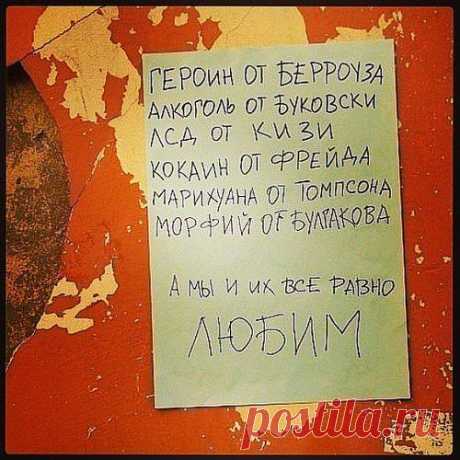 ГЕРОИН ОТ БЕРРОУЗА
АЛКОГОЛЬ ОТ БУКОВСКИ
ЛСД ОТ КИЗИ
КОКАИН ОТ ФРЕЙДА
МАРИХУАНА ОТ ТОМПСОНА
МОРФИЙ ОТ БУЛГАКОВА
А МЫ И ИХ ВСЕ РАВНО
ЛЮБИМ
postila.ru